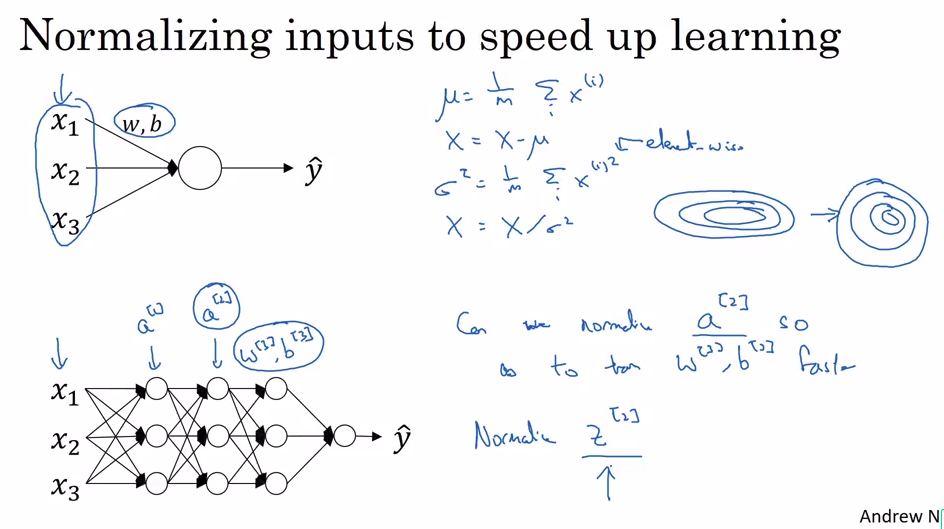 Normalizing inputs to speed up learning
x₁
w, b
x₂
ŷ
x₃
μ = 1/m Σᵢ x⁽ⁱ⁾
X = X - μ
element-wise
σ² = 1/m Σᵢ x⁽ⁱ⁾²
X = X / σ²
a^[1]
a^[2]
w^[3], b^[3]
x₁
x₂
ŷ
x₃
Can we normalize a^[2] so
as to train w^[3], b^[3] faster
Normalize z^[2]
Andrew N